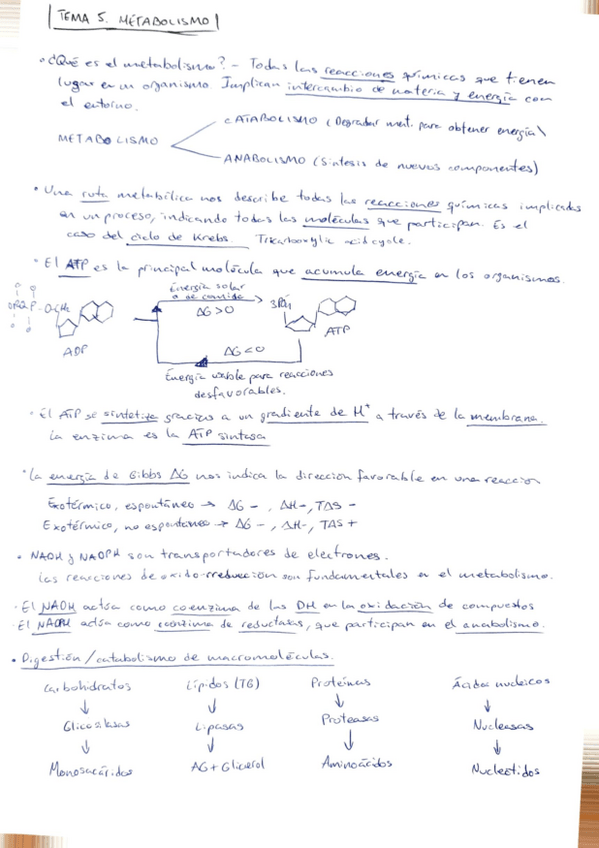 TEMA 5. METABOLISMO
• ¿Qué es el metabolismo? - Todas las reacciones químicas que tienen
lugar en un organismo. Implican intercambio de materia y energía con
el entorno.
CATABOLISMO (Degradar mat. para obtener energía)
METABOLISMO
ANABOLISMO (Síntesis de nuevos componentes)
• Una ruta metabílica nos describe todas las reacciones químicas implicadas
en un proceso, indicando todas las moléculas que participan. Es el
caso del ciclo de Krebs. Tricarboxylic acid cycle.
• El ATP es la principal molécula que acumula energía en los organismos.
Energía solar
o de comida
ΔG>0
ADP
ATP
ΔG<0
Energía usable para reacciones
desfavorables.
· El ATP se sintetiza gracias a un gradiente de H⁺ a través de la membrana.
La enzima es la ATP sintasa
• La energía de Gibbs ΔG nos indica la dirección favorable en una reacción
Exotérmico, espontáneo → ΔG - , ΔH-, TΔS -
Exotérmico, no espontáneo → ΔG - , ΔH-, TΔS +
• NADH y NADPH son transportadores de electrones.
Las reacciones de oxido-rreducción son fundamentales en el metabolismo.
· El NADH actúa como coenzima de las DH en la oxidación de compuestos
· El NADPH actúa como coenzima de reductasas, que participan en el anabolismo.
• Digestión/catabolismo de macromoléculas.
Carbohidratos Lípidos (TG) Proteínas Ácidos nucleicos
↓ ↓ ↓ ↓
Glicosilasas Lipasas Proteasas Nucleasas
↓ ↓ ↓ ↓
Monosacáridos AG + Glicerol Aminoácidos Nucleótidos